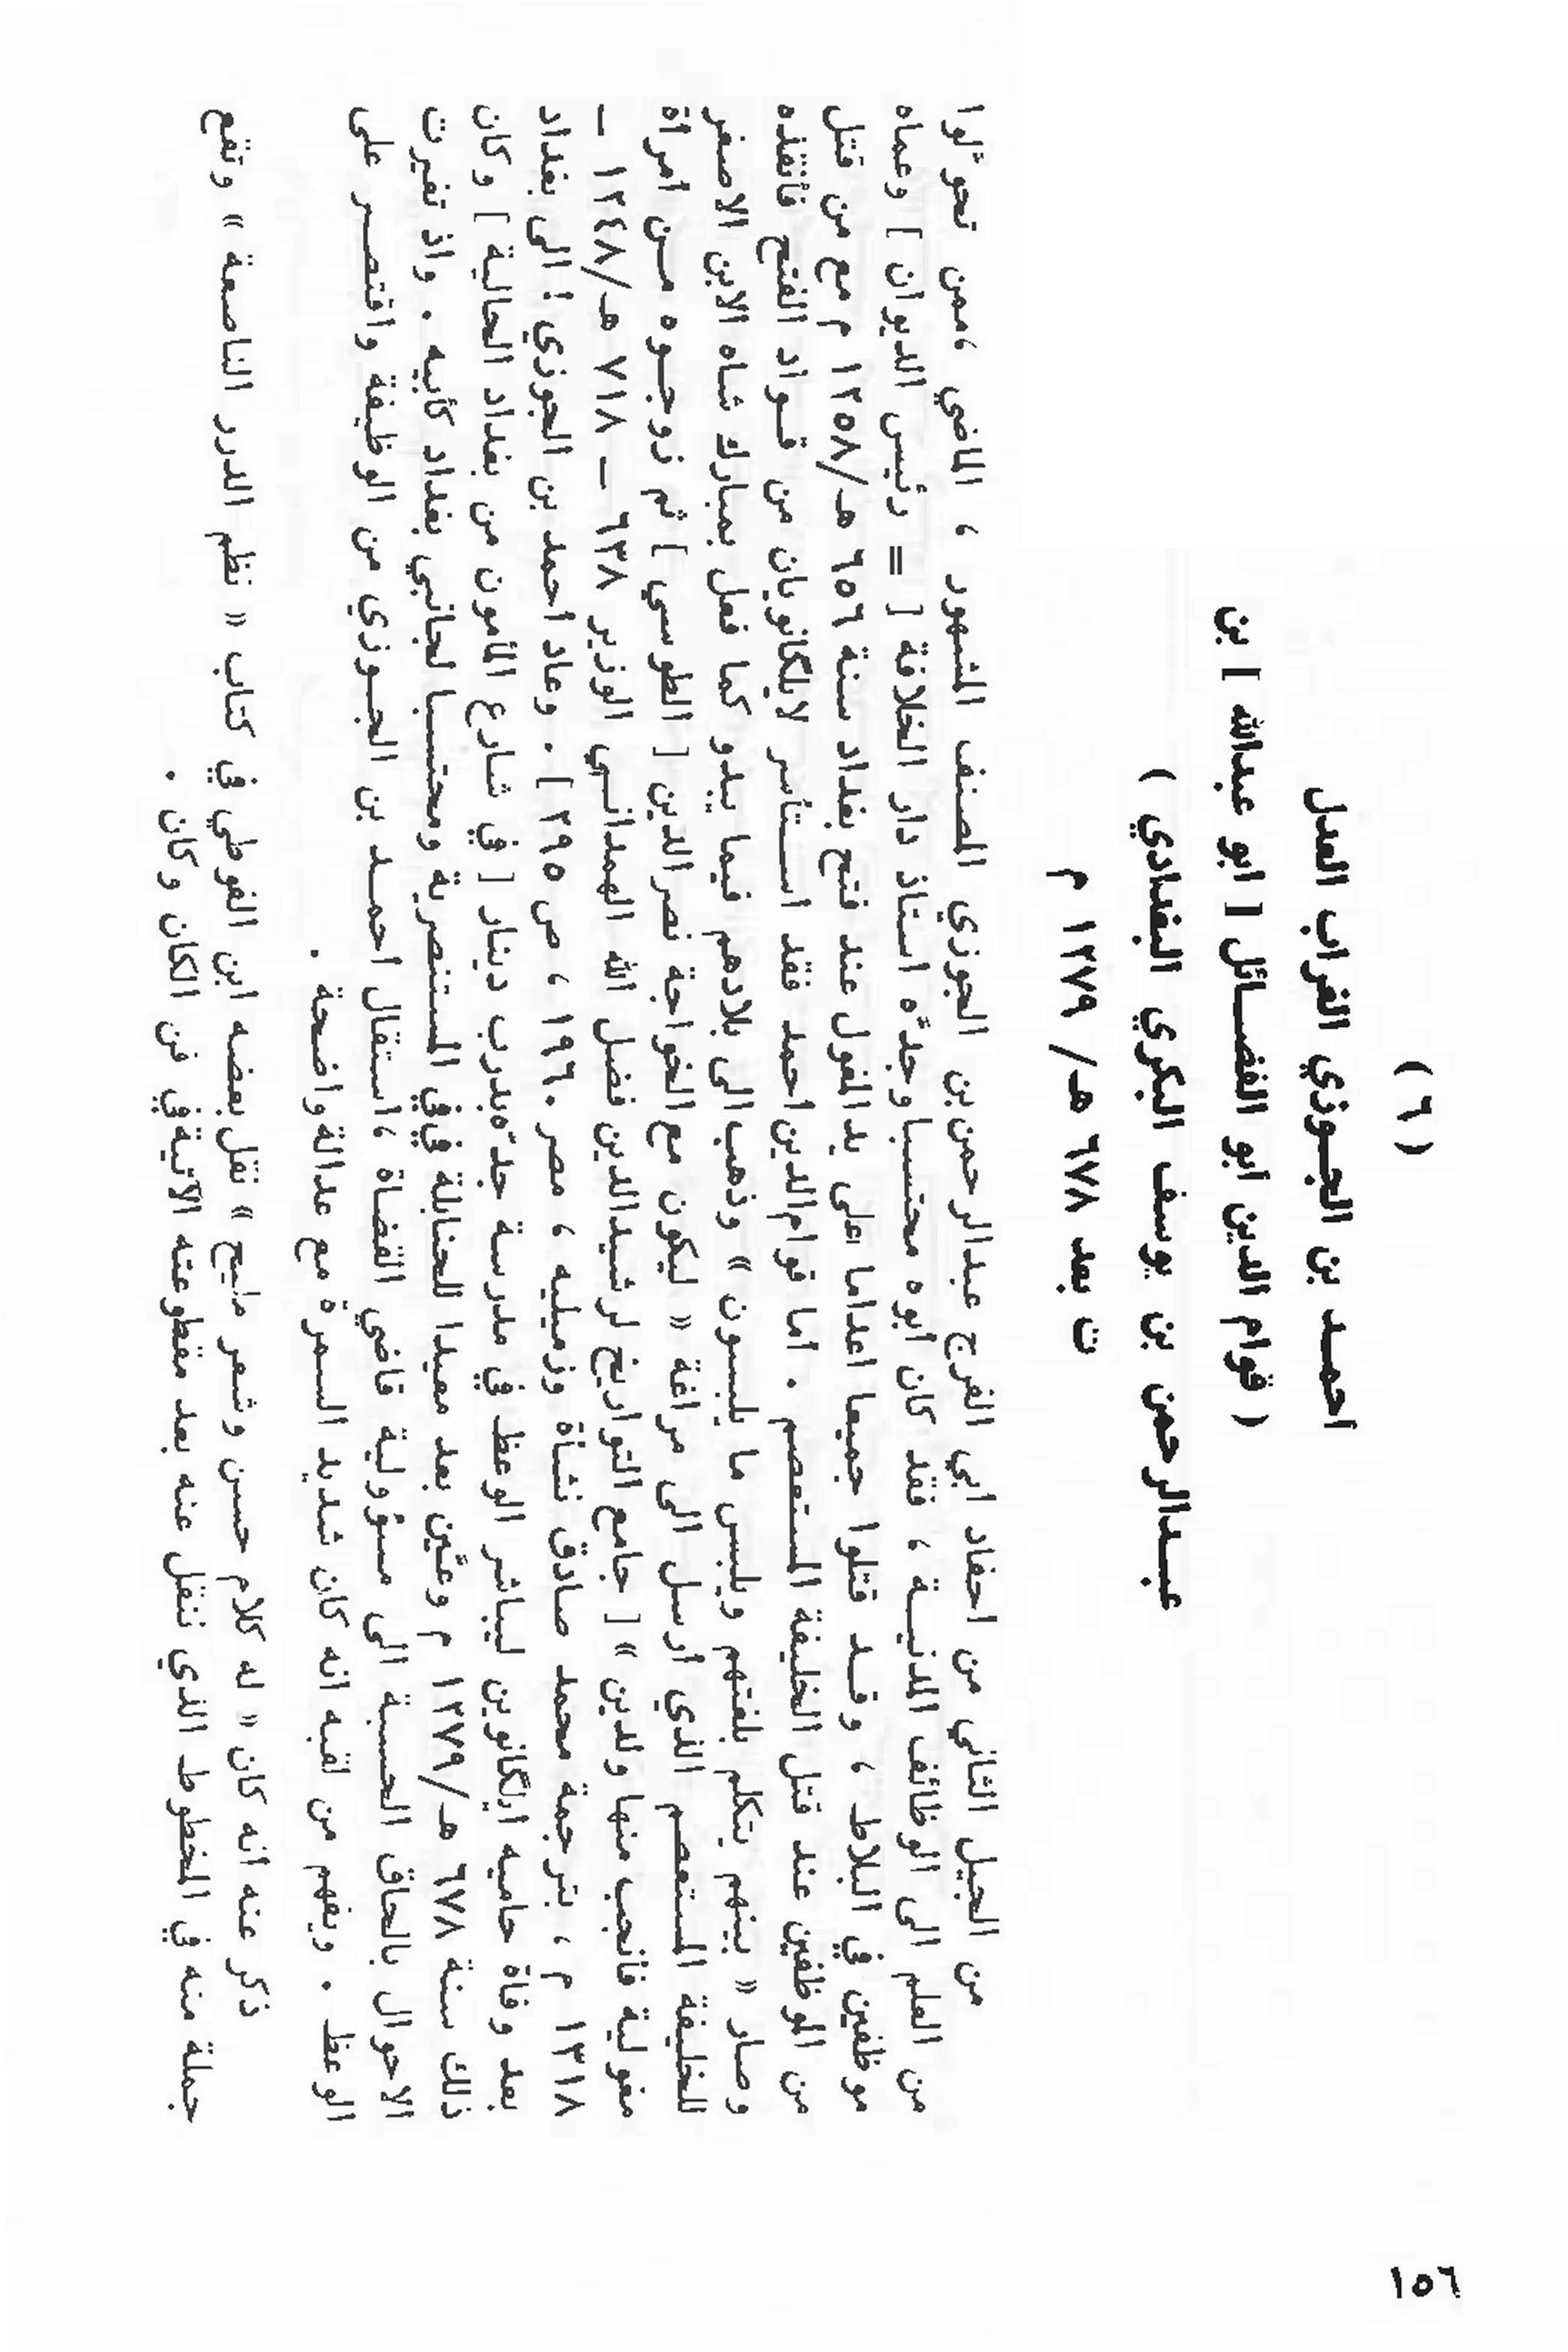 ١٥٦
( ٦ )
احمـد بن الجـوزي الغراب العدل
( قوام الدين ابو الفضـائل [ ابو عبدالله ] بن
عبـدالرحمن بن يوسف البكري البغدادي )
ت بعد ٦٧٨ هـ/ ١٢٧٩ م
من الجيل الثاني من احفاد ابي الفرج عبدالرحمن بن الجوزي المصنف المشهور ، الماضي ،ممن تحوّلوا
من العلم الى الوظائف المدنيـة ، فقد كان أبوه محتسبا وجدّه استاذ دار الخلافة [ = رئيس الديوان ] وعماه
موظفين في البلاط ، وقـد قتلوا جميعا اعداما على يد المغول عند فتح بغداد سنة ٦٥٦ هـ/١٢٥٨ م مع من قتل
من الموظفين عند قتل الخليفة المستعصم . اما قوام الدين احمد فقد اسـتأسر لايلگانويان من قـواد الفتح فأنقذه
وصار « بينهم يتكلم بلغتهم ويلبس ما يلبسون » وذهب الى بلادهم فيما يبدو كما فعل بمبارك شاه الابن الاصغر
للخليفة المستعصم الذي أرسل الى مراغة « ليكون مع الخواجة نصر الدين [ الطوسي ] ثم زوجـوه مـن امرأة
مغولية فأنجب منها ولدين » [ جامع التواريخ لرشيد الدين فضل الله الهمدانـي الوزير ٦٣٨ – ٧١٨ هـ/١٢٤٨ –
١٣١٨ م ، بترجمة محمد صادق نشأة وزميليه ، مصر ١٩٦٠ ، ص ٢٩٥ ] . وعاد احمد بن الجوزي ! الى بغداد
بعد وفاة حاميه ايلگانوين ليباشر الوعظ في مدرسة جدّه بدرب دينار [ في شارع المأمون من بغداد الحالية ] وكان
ذلك سنة ٦٧٨ هـ/١٢٧٩ م وعيّن بعد معيدا للحنابلة في المستنصرية ومحتسـبا لجانبي بغداد كأبيه . واذ تغيرت
الاحوال بالحاق الحسبة الى مسؤولية قاضي القضاة ،استقال احمـد بن الجـوزي من الوظيفة واقتصـر على
الوعظ . ويفهم من لقبه انه كان شديد السمرة مع عدالة واضحة .
ذكر عنه انه كان « له كلام حسن وشعر مليح » نقل بعضه ابن الفوطي في كتاب « نظم الدرر الناصعة » وتقع
جملة منه في المخطوط الذي ننقل عنه بعد مقطوعته الآتية في فن الكان وكان .